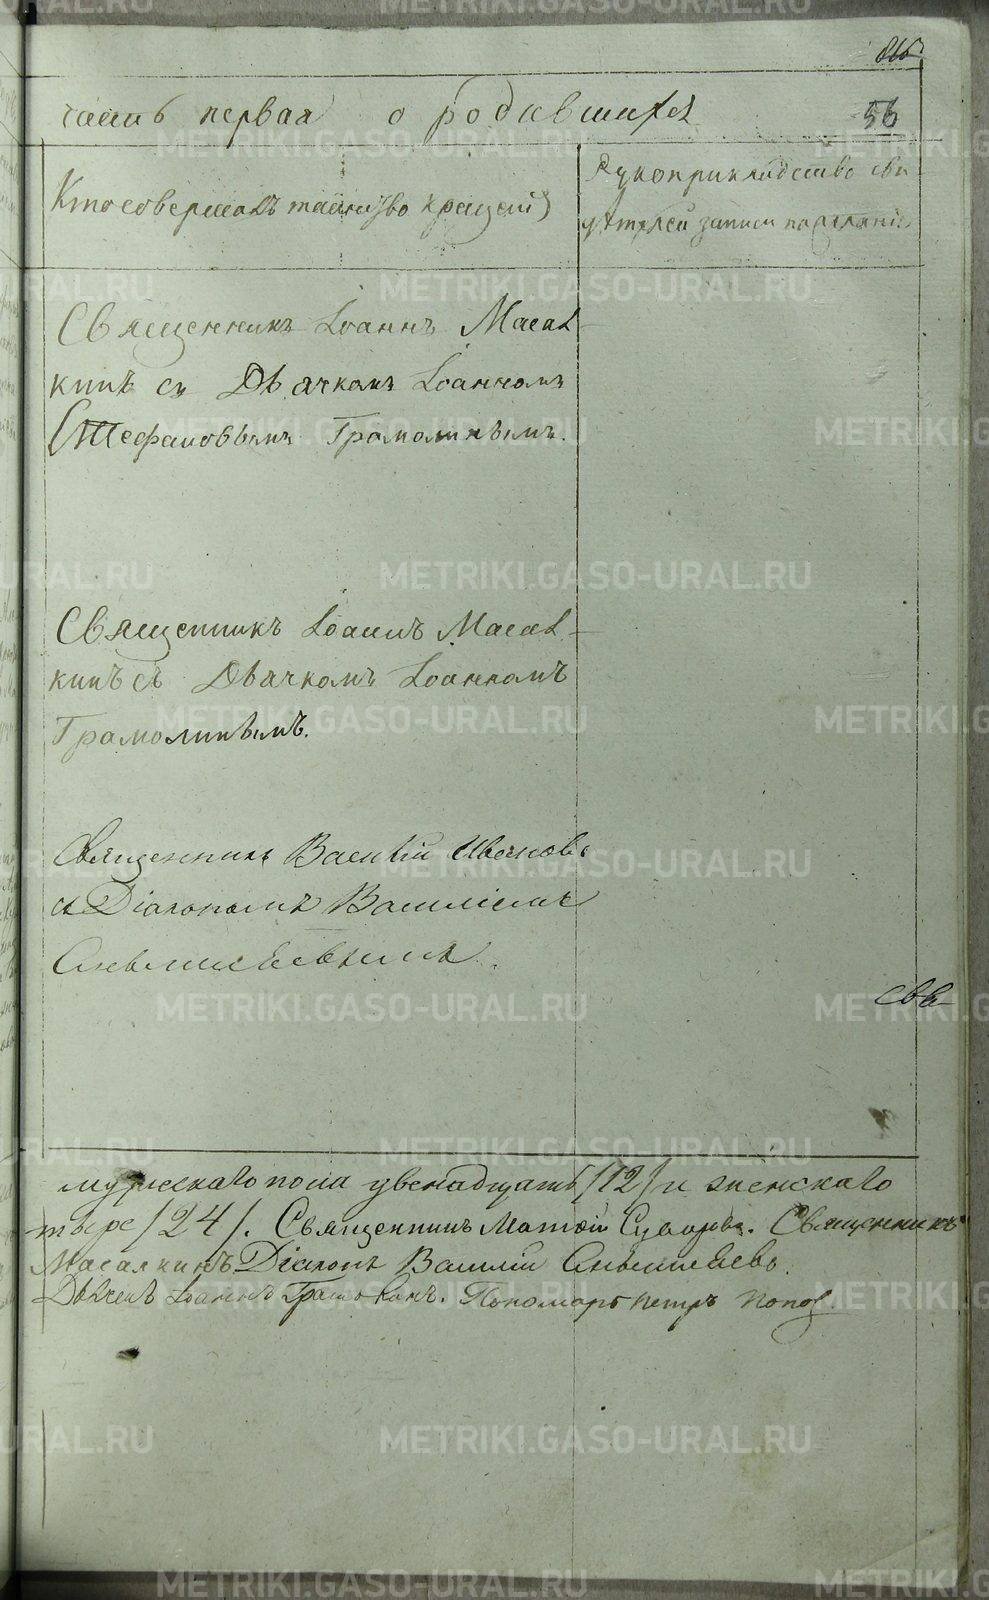 56
часть первая о родившихся
Кто совершалъ таинство крещенія
Рукоприкладство сви
дѣтелей записи по желанію
Священникъ Іоаннъ Масал-
кинъ съ Дьячкомъ Іоанномъ
Стефановымъ Грамолинымъ.
Священникъ Іоаннъ Масал-
кинъ съ Дьячкомъ Іоанномъ
Грамолинымъ.
Священникъ Василій Ивановъ
съ Діакономъ Василіемъ
мужескаго пола двенадцать /12/ и женскаго
тыре /24/. Священникъ Матѳій Суворовъ. Священникъ
Масалкинъ Діаконъ Василій
Дьячекъ Іоаннъ Пономарь петръ попов.
METRIKI.GASO-URAL.RU